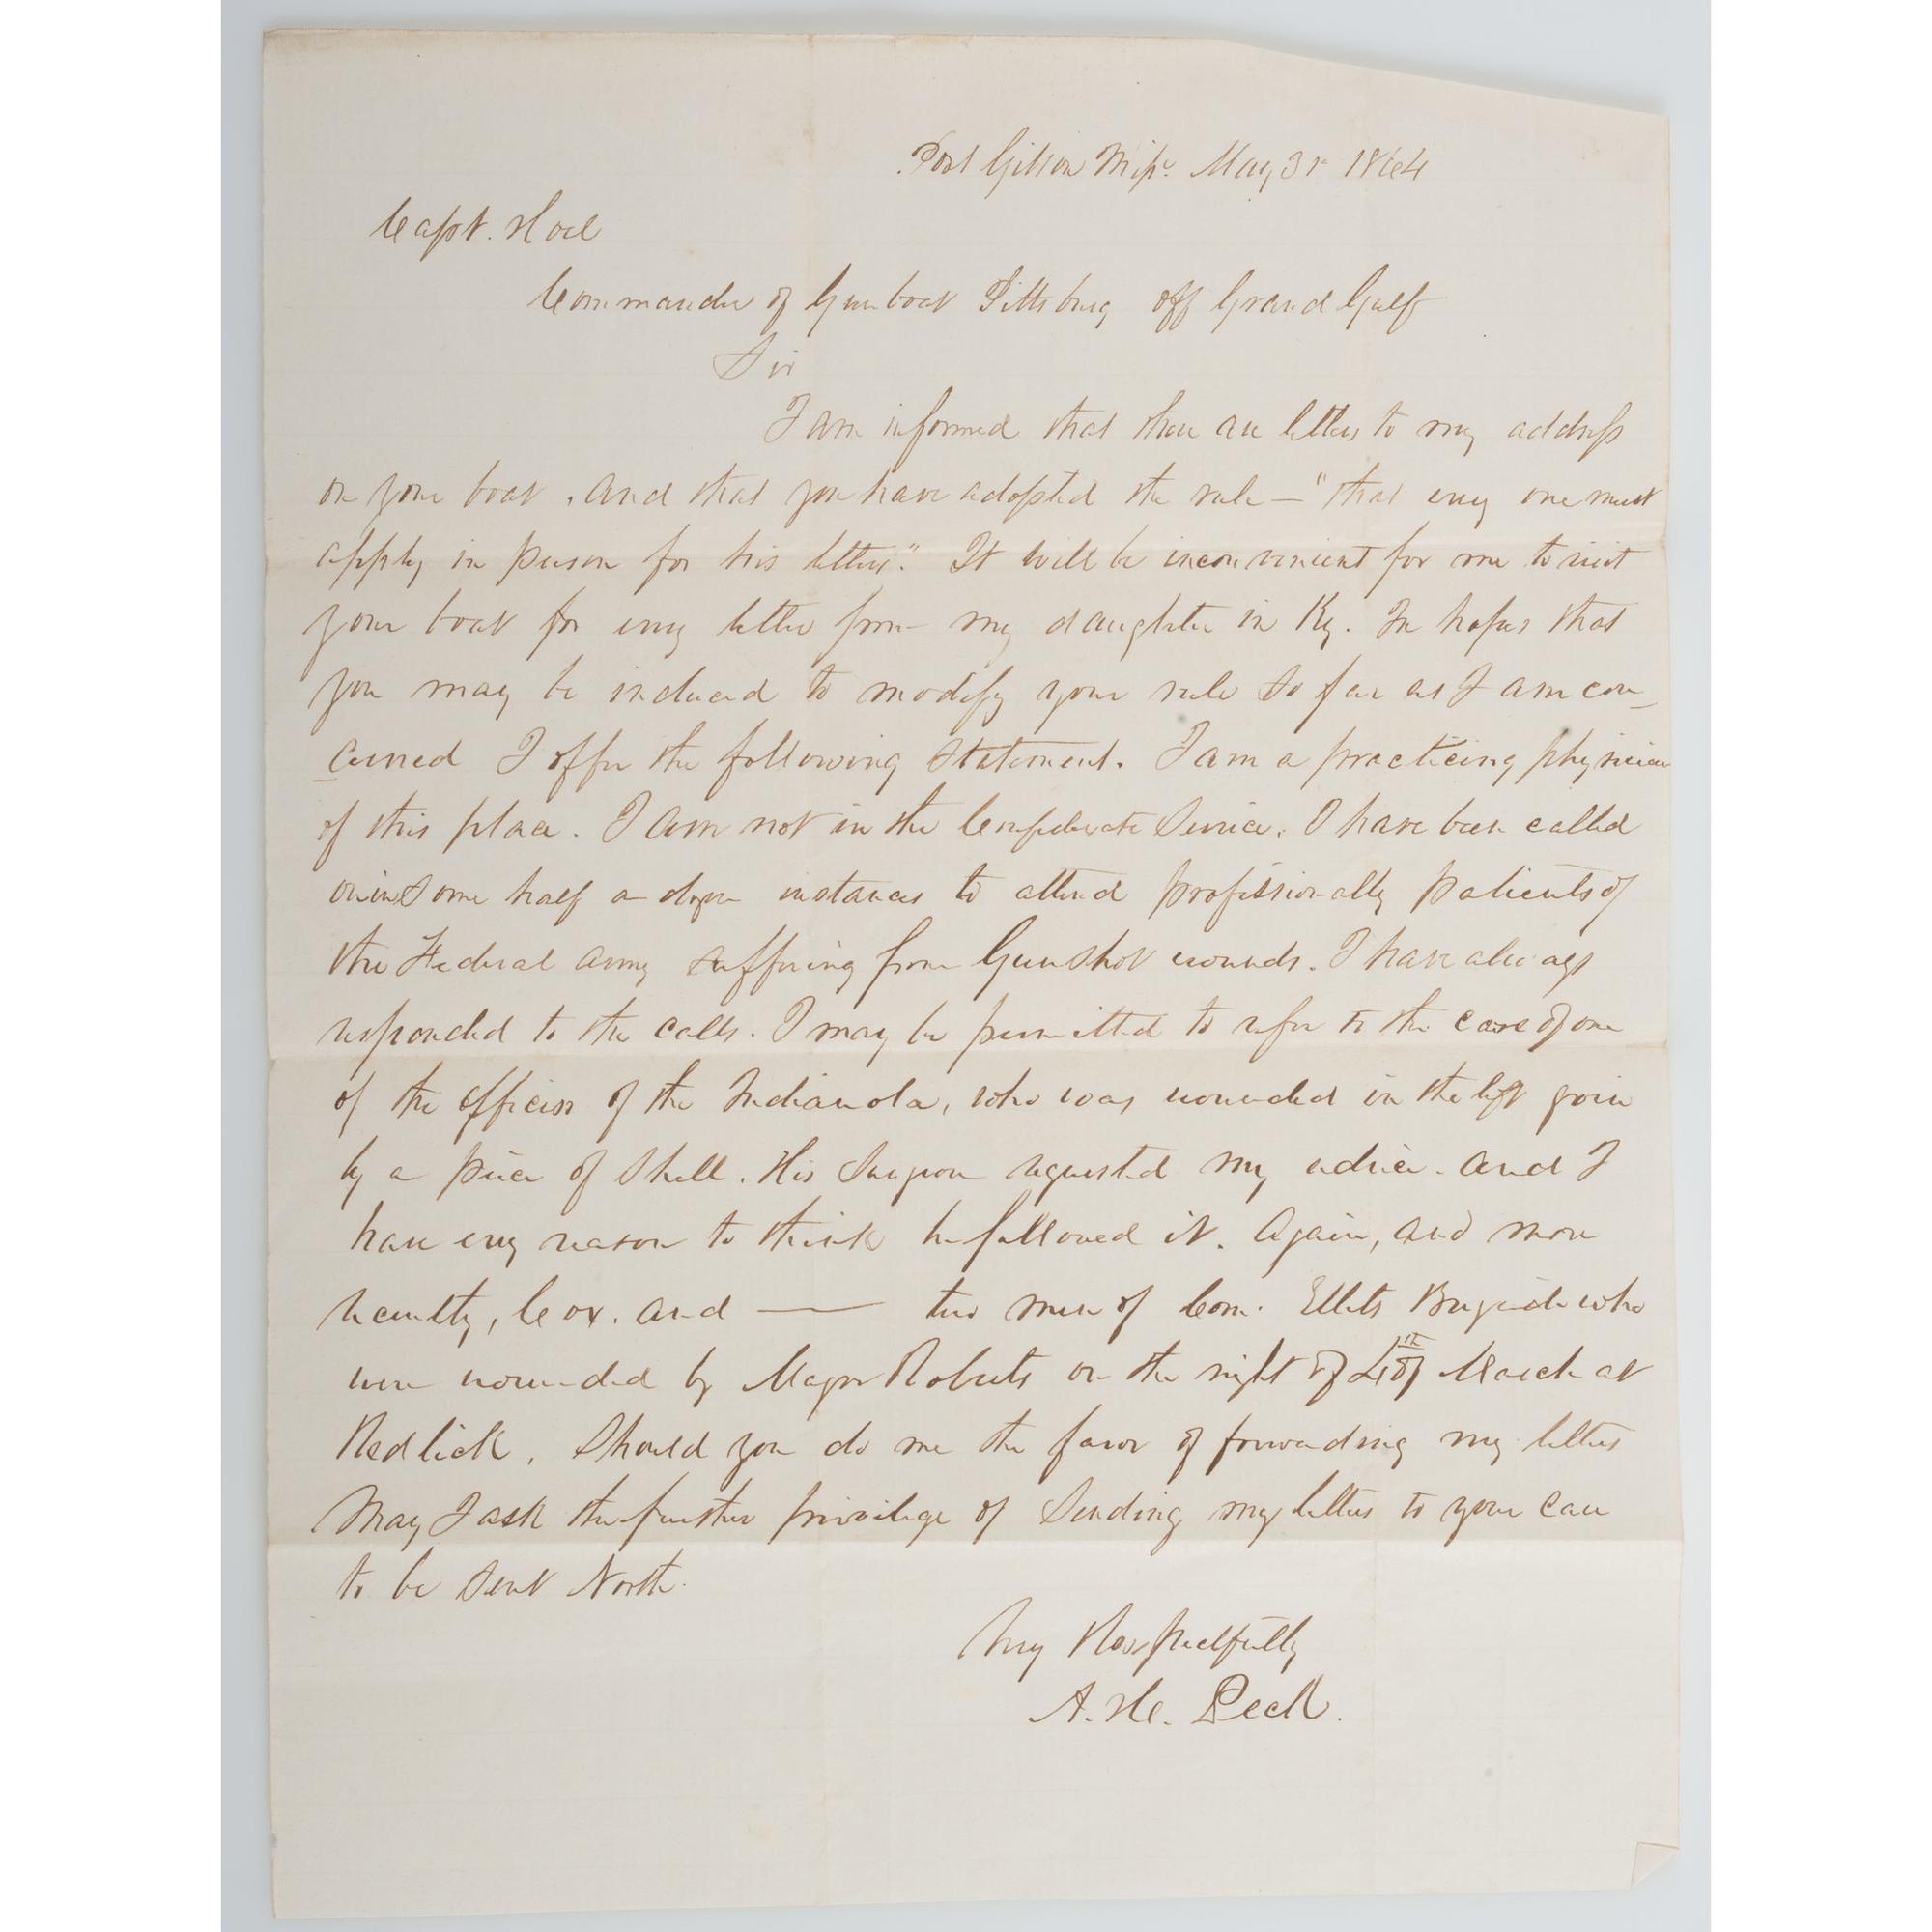 Port Gibson Missi. May 31st 1864
Capt. Hoel
Commander of Gunboat Pittsburg off Grand Gulf
Sir
I am informed that there are letters to my address
on your boat, and that you have adopted the rule — "that every one must
apply in person for his letters." It will be inconvenient for me to visit
your boat for every letter from my daughter in Ky. In hopes that
you may be induced to modify your rule so far as I am con-
cerned I offer the following statement. I am a practicing physician
of this place. I am not in the Confederate Service. I have been called
on in some half a dozen instances to attend professionally patients of
the Federal army suffering from Gunshot wounds. I have always
responded to the calls. I may be permitted to refer to the case of one
of the officers of the Indianola, who was wounded in the left groin
by a piece of Shell. His Surgeon requested my advice. and I
have every reason to think he followed it. Again, and more
recently, Cox. and —— two men of Com. Ellets Brigade who
were wounded by Major Roberts on the night of 4th of March at
Red lick. Should you do me the favor of forwarding my letters
May I ask the further privilege of Sending my letters to your care
to be sent North.
Very Respectfully
A. H. Peck.